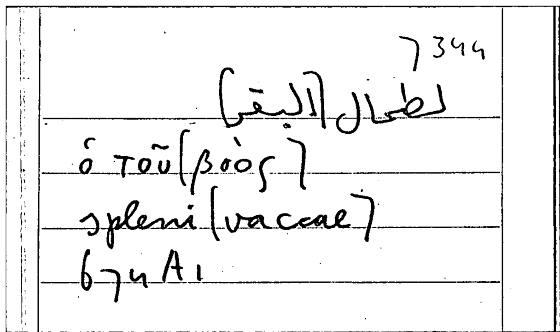 7344
لطحال [البقر]
ὁ τοῦ [βοὸς]
spleni [vaccae]
674 A1